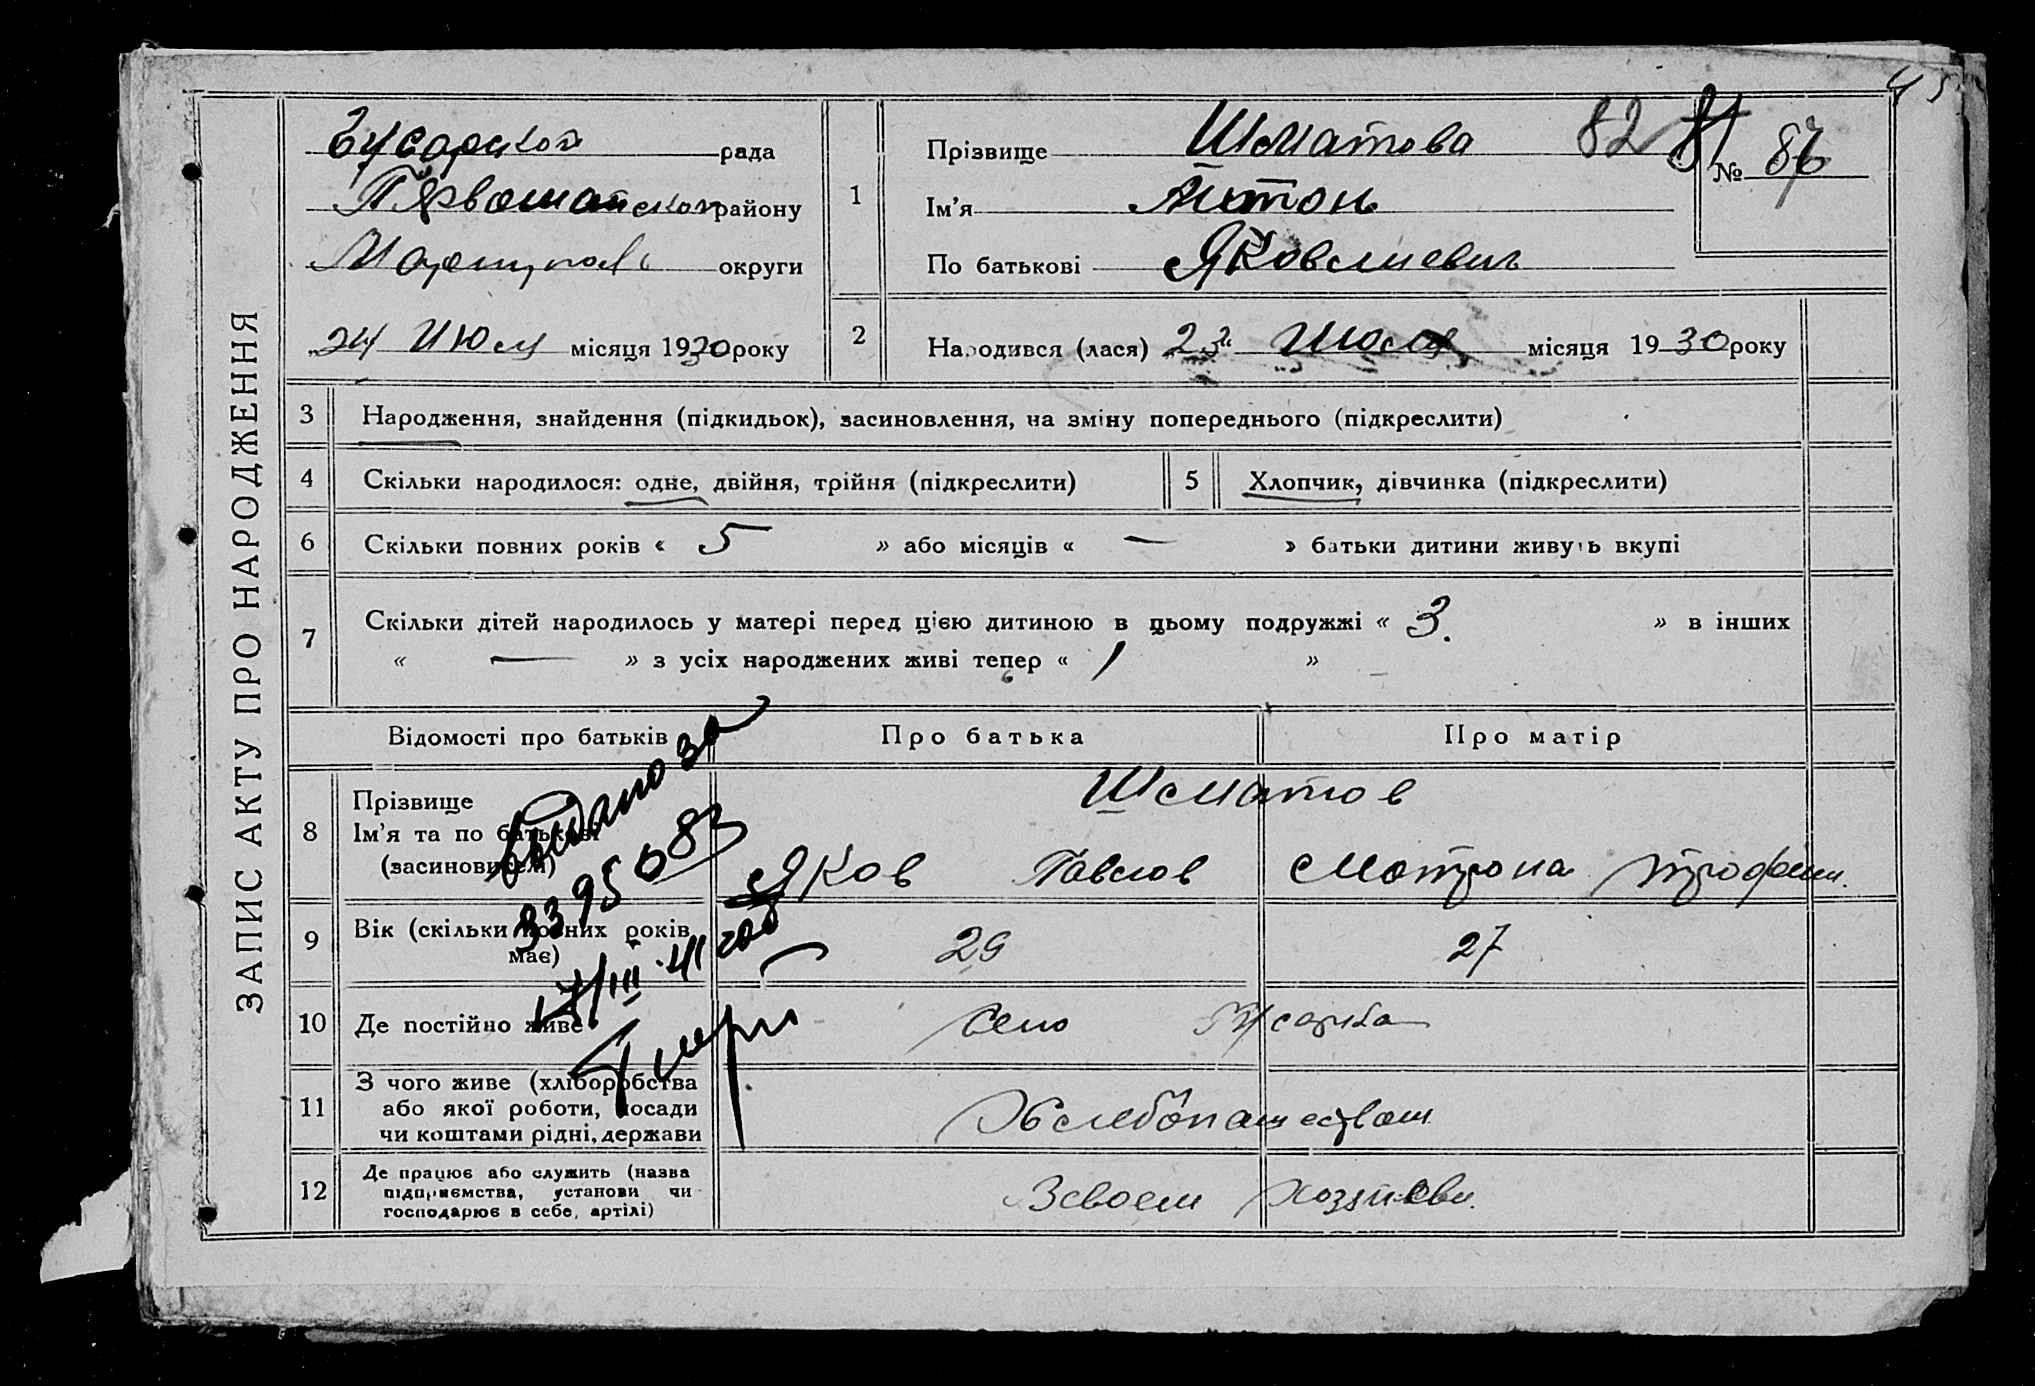 45
ЗАПИС АКТУ ПРО НАРОДЖЕННЯ
Гусарской рада
Первомайской району
Мариуполь округи
24 Июля місяця 1930 року
1
Прізвище Шматова
82 81 № 86
Ім'я Антон
По батькові Яковлиевич
2
Народився (лася) 23 Июля місяця 1930 року
3 Народження, знайдення (підкидьок), засиновлення, на зміну попереднього (підкреслити)
4 Скільки народилося: одне, двійня, трійня (підкреслити) 5 Хлопчик, дівчинка (підкреслити)
6 Скільки повних років « 5 » або місяців « — » батьки дитини живуть вкупі
7 Скільки дітей народилось у матері перед цією дитиною в цьому подружжі « 3. » в інших
« — » з усіх народжених живі тепер « 1 »
Відомості про батьків Про батька Про матір
8 Прізвище
Ім'я та по батькові
(засиновителі)
Шматов
Яков Павлов Матрона Трофим.
9 Вік (скільки повних років
має)
29 27
10 Де постійно живе Село Гусарка
11 З чого живе (хліборобства
або якої роботи, посади
чи коштами рідні, держави
Хлебопашеством
12 Де працює або служить (назва
підприємства, установи чи
господарює в себе, артілі)
В своем хозяйстви.
Выдано за
3395083
17/III 41 год